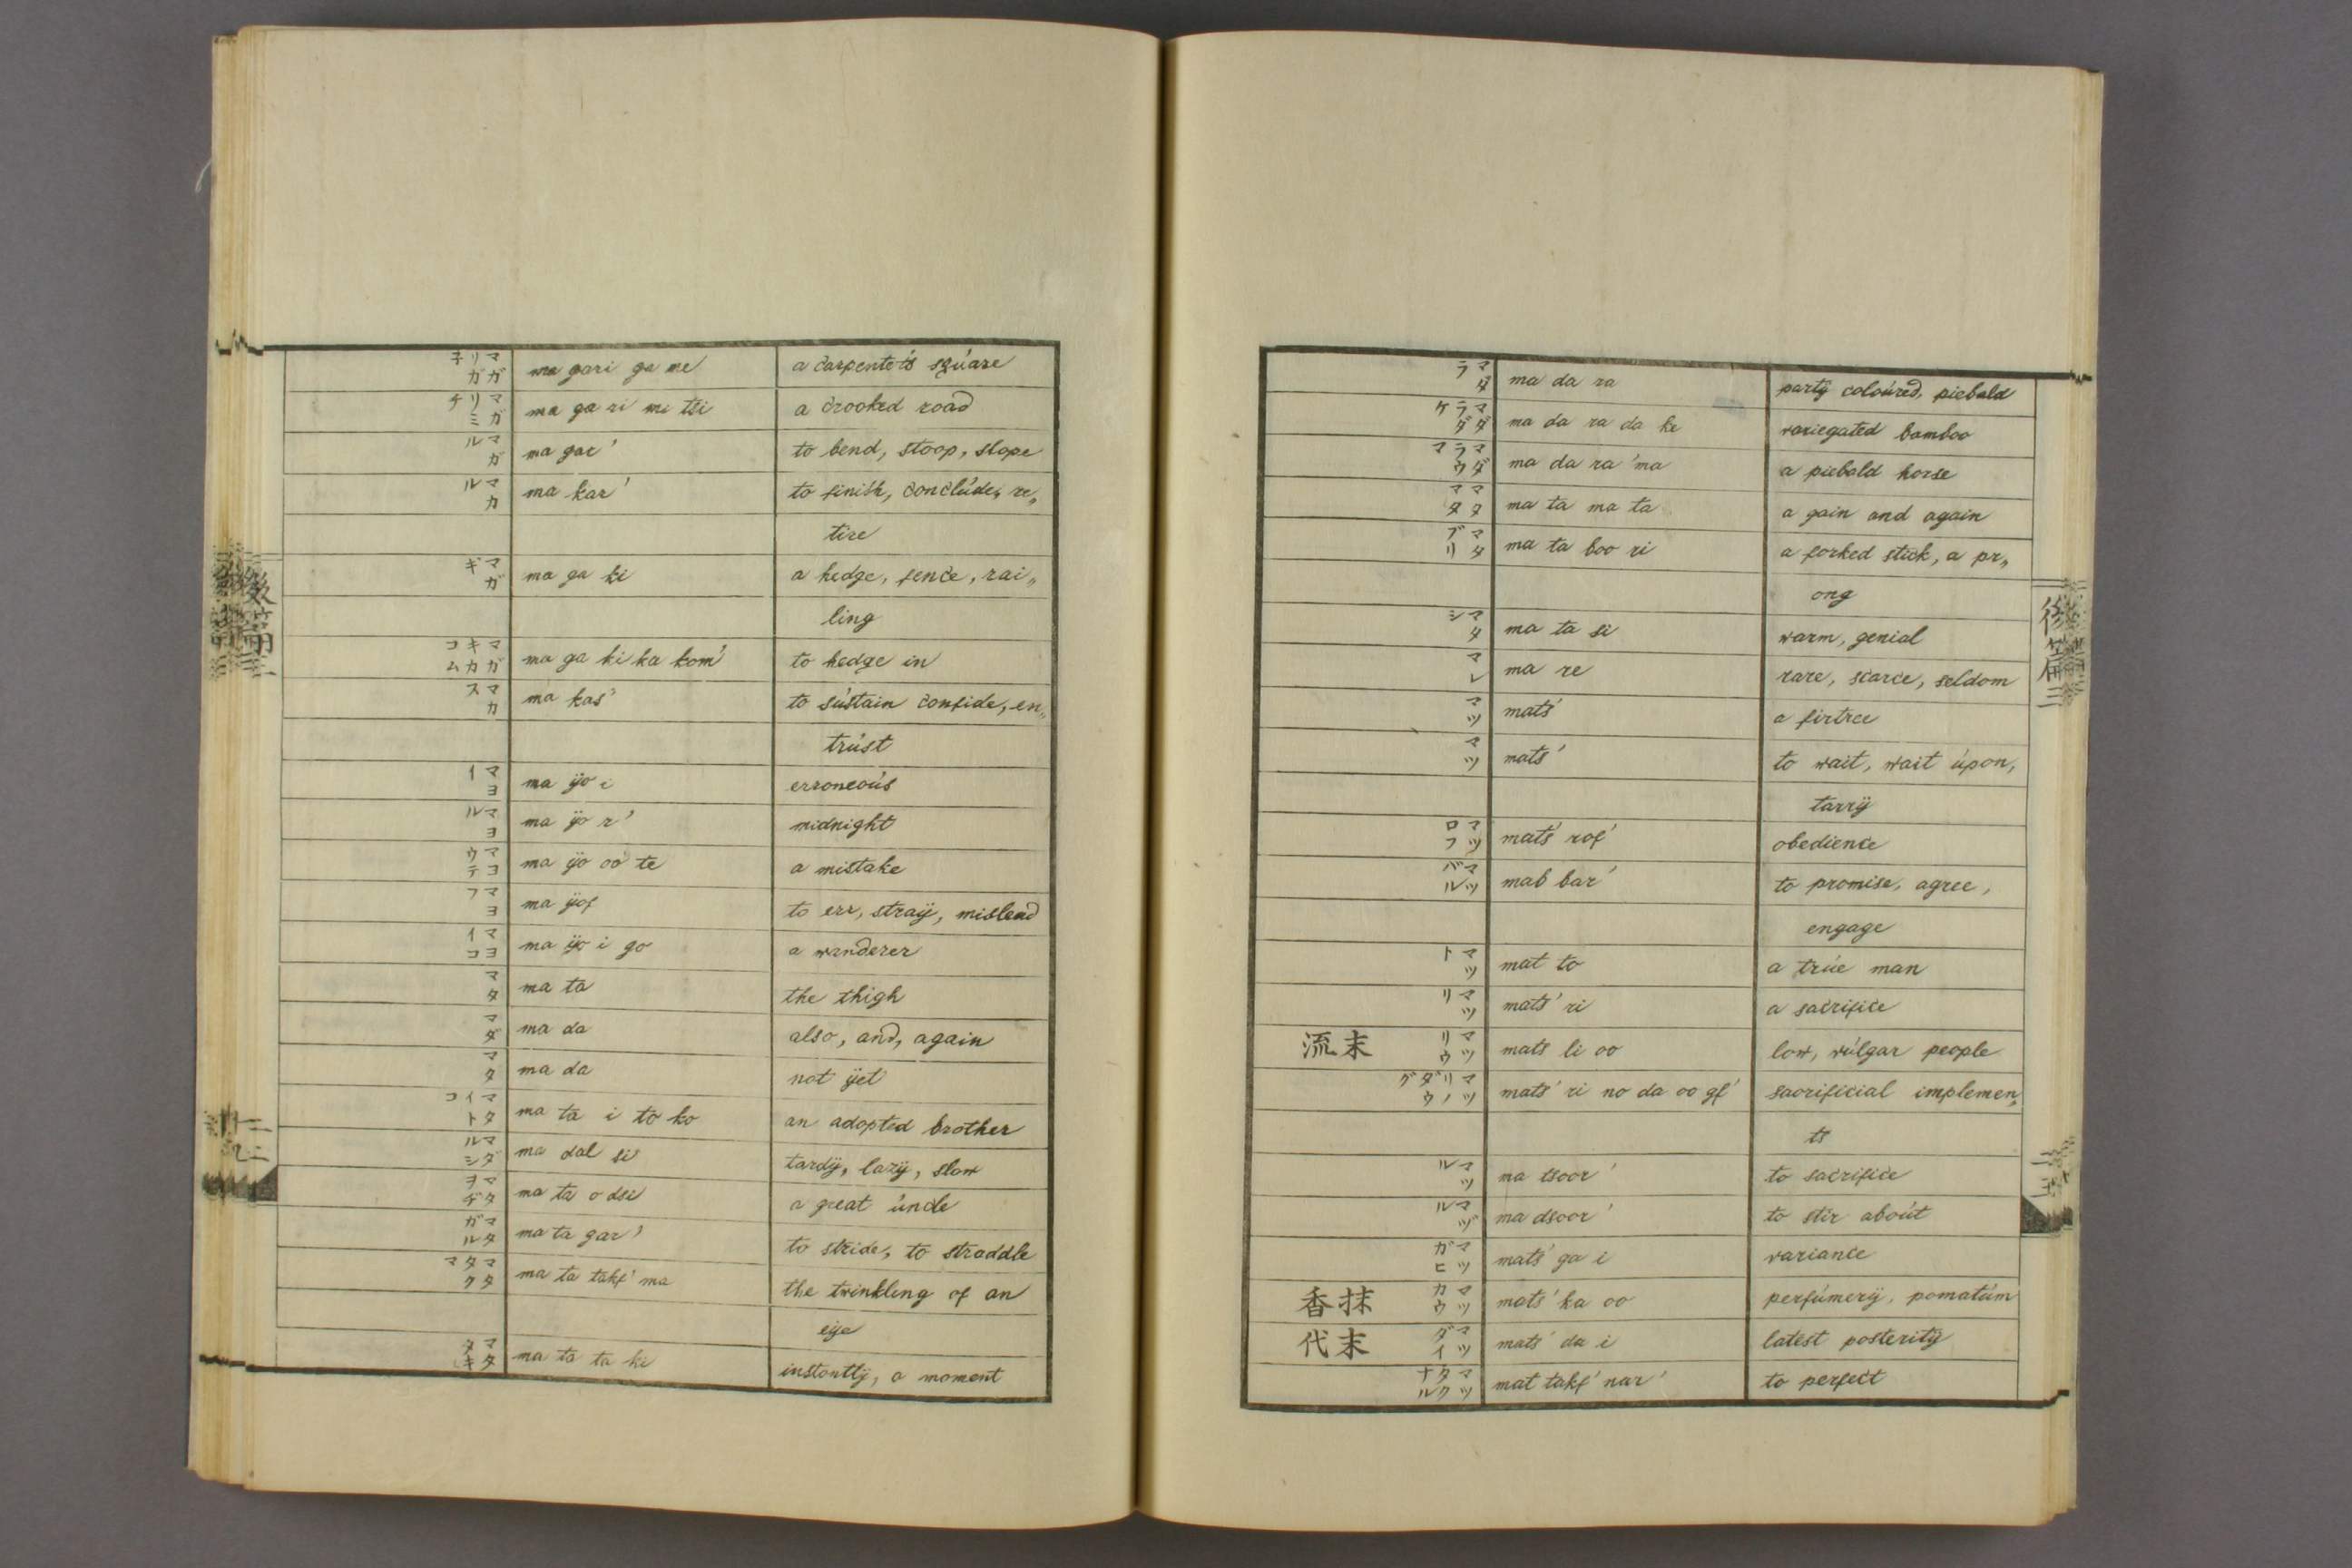 マガリガ子 ma gari ga ne a carpenter's square
マガリミチ ma ga ri mi tsi a crooked road
マガル ma gar' to bend, stoop, slope
マカル ma kar' to finish, conclude, re„
tire
マガキ ma ga ki a hedge, fence, rai„
ling
マガキカコム ma ga ki ka kom' to hedge in
マカス ma kas' to sustain confide, en„
trust
マヨイ ma ÿo i erroneous
マヨル ma ÿo r' midnight
マヨウテ ma ÿo oo te a mistake
マヨフ ma ÿof to err, straÿ, mislead
マヨイコ ma ÿo i go a wanderer
マタ ma ta the thigh
マダ ma da also, and, again
マタ ma da not ÿet
マタイトコ ma ta i to ko an adopted brother
マダルシ ma dal si tardÿ, lazÿ, slow
マタヲヂ ma ta o dsi a great uncle
マタガル ma ta gar' to stride, to straddle
マタタクマ ma ta takf' ma the twinkling of an
eÿe
マタタキ ma ta ta ki instantlÿ, a moment
後篇
マダラ ma da ra partÿ coloured, piebald
マダラダケ ma da ra da ke variegated bamboo
マダラウマ ma da ra 'ma a piebald horse
マタマタ ma ta ma ta a gain and again
マタブリ ma ta boo ri a forked stick, a pr„
ong
マタシ ma ta si warm, genial
マレ ma re rare, scarce, seldom
マツ mats' a firtree
マツ mats' to wait, wait upon,
tarrÿ
マツロフ mats' rof' obedience
マツバル mab bar' to promise, agree,
engage
マツト mat to a true man
マツリ mats' ri a sacrifice
末流 マツリウ mats li oo low, vulgar people
マツリノダウグ mats' ri no da oo gf' sacrificial implemen„
ts
マツル ma tsoor' to sacrifice
マヅル ma dsoor' to stir about
マツガヒ mats' ga i variance
抹香 マツカウ mats' ka oo perfumerÿ, pomatum
末代 マツダイ mats' da i latest posteritÿ
マツタクナル mat takf' nar' to perfect
後篇